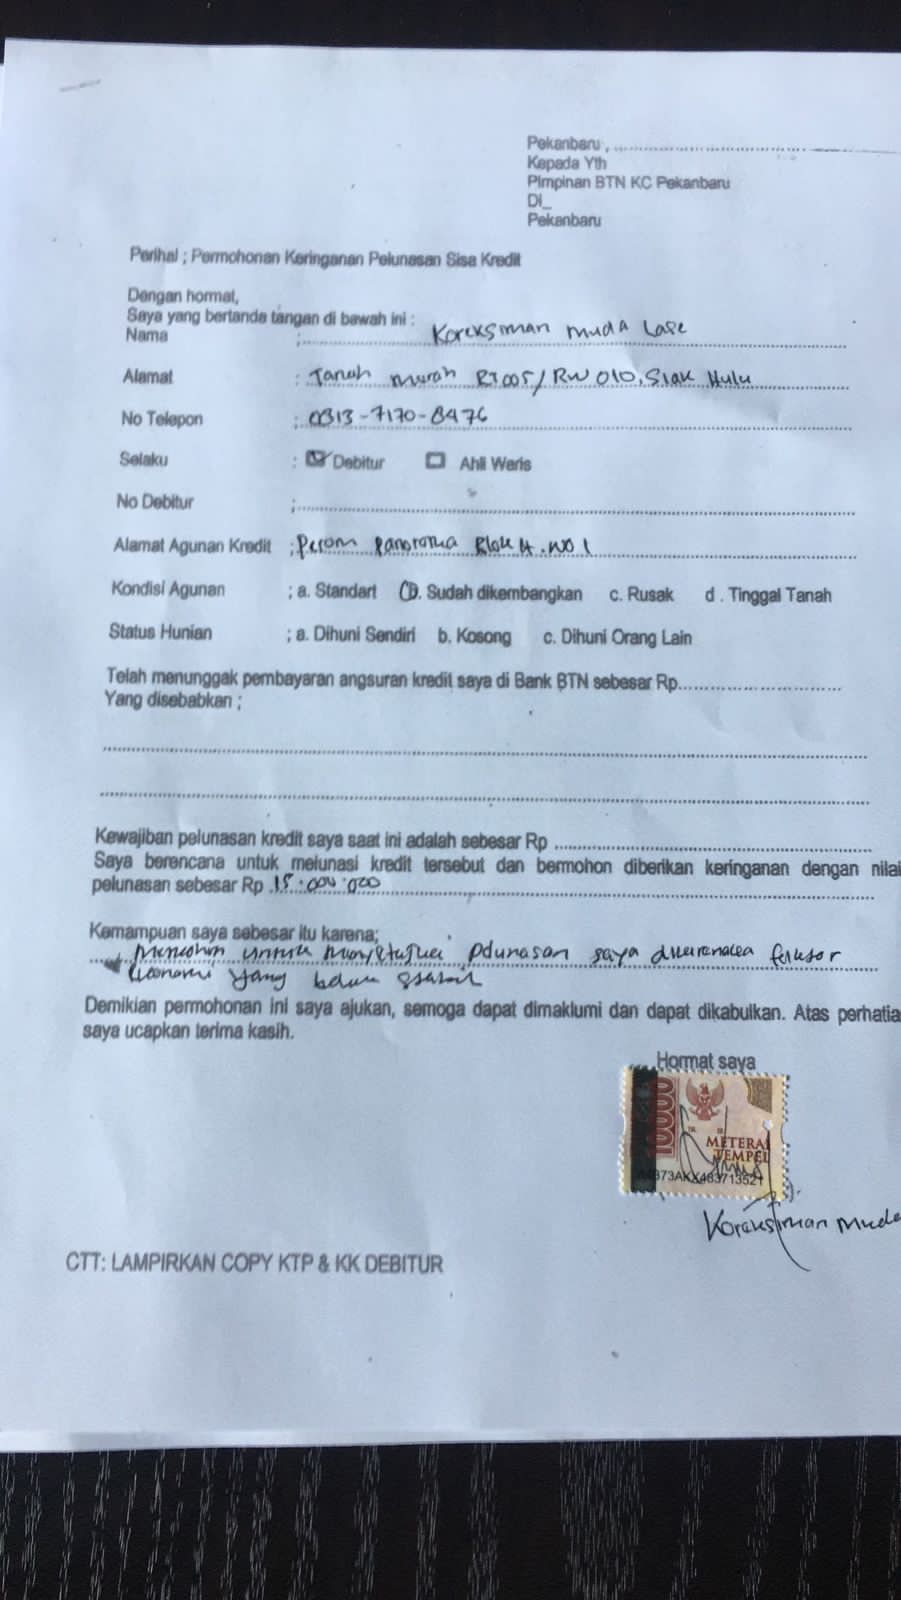 Pekanbaru, ........................
Kepada Yth
Pimpinan BTN KC Pekanbaru
Di_
Pekanbaru
Perihal ; Permohonan Keringanan Pelunasan Sisa Kredit
Dengan hormat,
Saya yang bertanda tangan di bawah ini :
Nama ; Koreksiman Muda Lase
Alamat : Tanah Merah RT005/RW 010, Siak Hulu
No Telepon ; 0813-7170-8476
Selaku : Debitur Ahli Waris
No Debitur ;
Alamat Agunan Kredit ; Perum Panorama Blok H. No 1
Kondisi Agunan ; a. Standart b. Sudah dikembangkan c. Rusak d . Tinggal Tanah
Status Hunian ; a. Dihuni Sendiri b. Kosong c. Dihuni Orang Lain
Telah menunggak pembayaran angsuran kredit saya di Bank BTN sebesar Rp........................
Yang disebabkan ;
Kewajiban pelunasan kredit saya saat ini adalah sebesar Rp ........................
Saya berencana untuk melunasi kredit tersebut dan bermohon diberikan keringanan dengan nilai
pelunasan sebesar Rp 15.000.000
Kemampuan saya sebesar itu karena;
Memohon untuk menyetujui pelunasan saya dikarenakan faktor
ekonomi yang belum
Demikian permohonan ini saya ajukan, semoga dapat dimaklumi dan dapat dikabulkan. Atas perhatia
saya ucapkan terima kasih.
Hormat saya
10000
METERAI
TEMPEL
Koreksiman Muda
CTT: LAMPIRKAN COPY KTP & KK DEBITUR